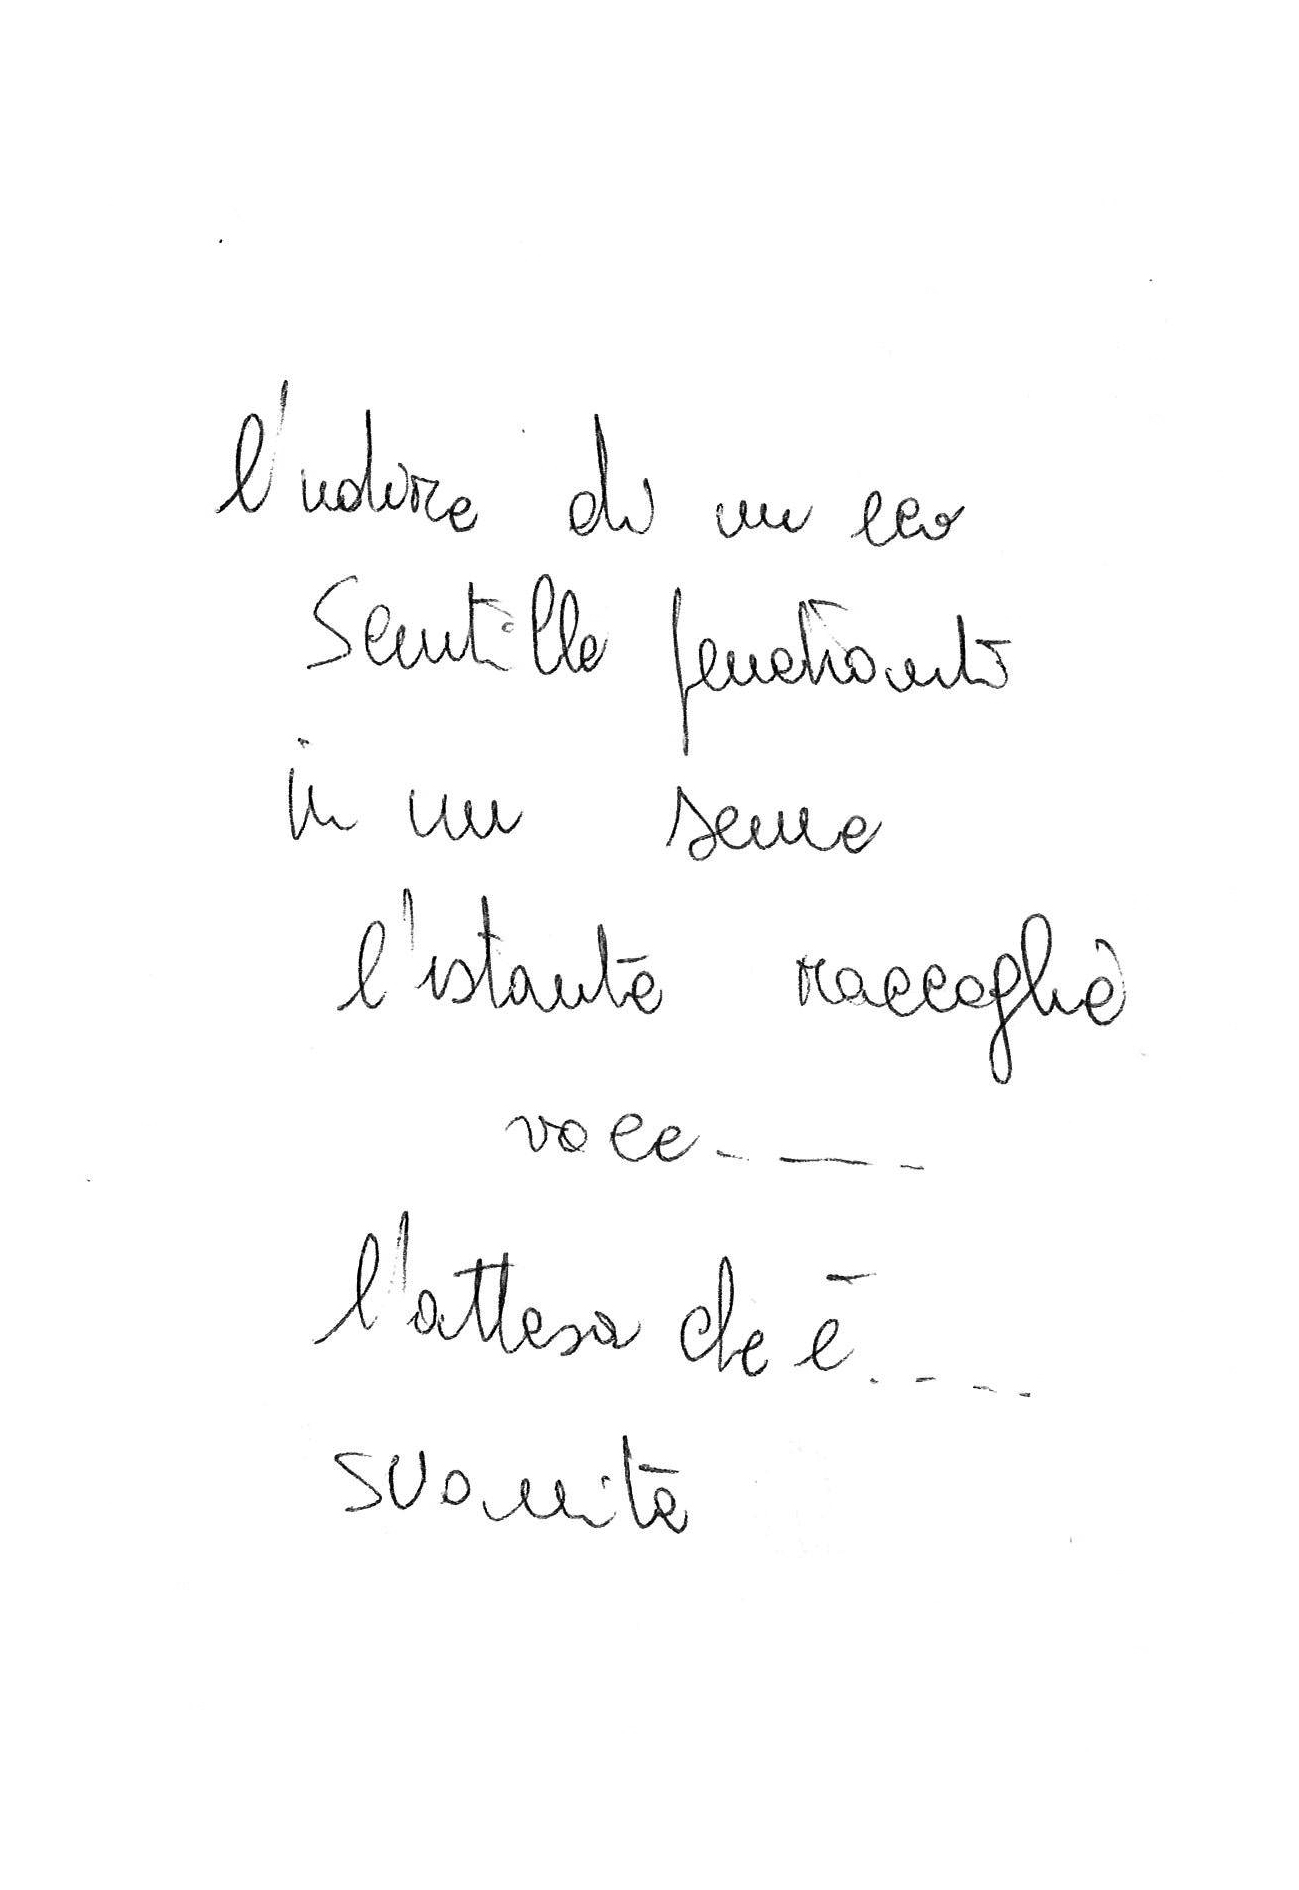 l'udire di un eco
Scintille penetranti
in un seme
l'istante raccoglie
voce-----
l'attesa che è....
svanita